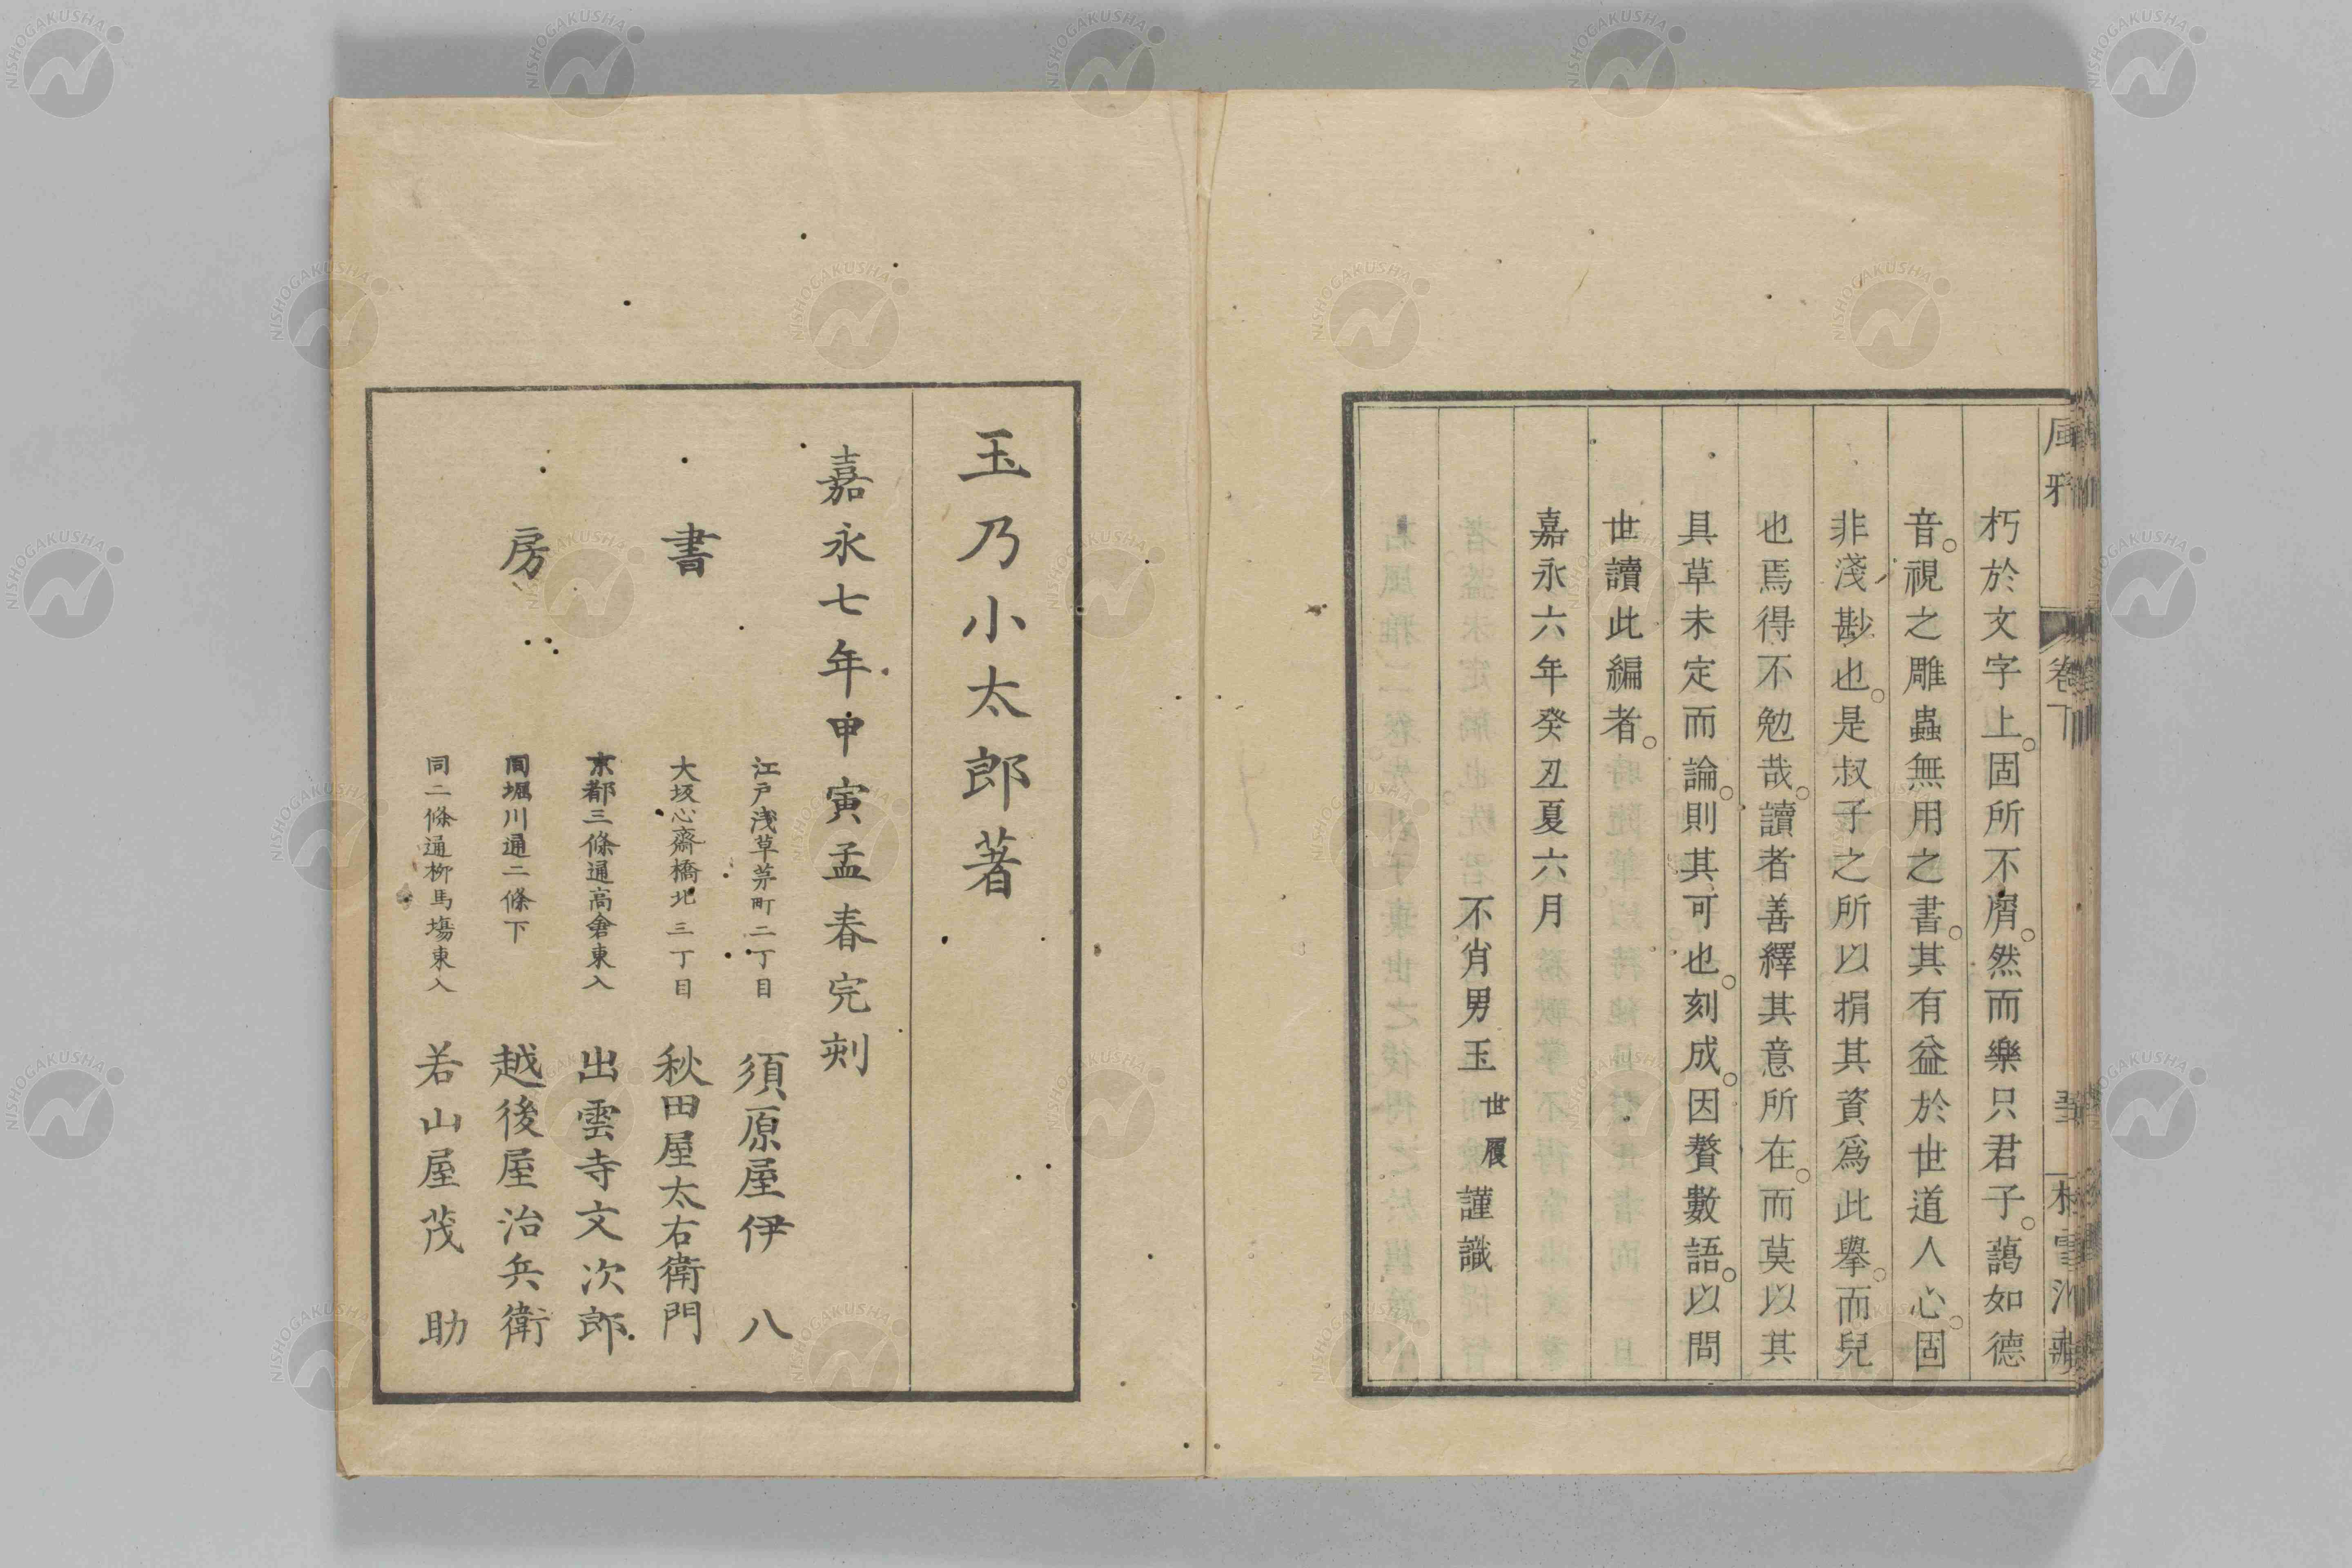 朽於文字上。固所不屑。然而樂只君子。藹如德
音。視之雕蟲無用之書。其有益於世道人心。固
非淺尠也。是叔子之所以捐其資爲此擧。而兒
也焉得不勉哉。讀者善繹其意所在。而莫以其
具草未定而論。則其可也。刻成。因贅數語。以問
世讀此編者。
嘉永六年癸丑夏六月
不肖男玉世履謹識
玉乃小太郎著
嘉永七年申寅孟春完刻
書房
江戸浅草茅町二丁目 須原屋伊八
大坂心齋橋北三丁目 秋田屋太右衛門
京都三條通高倉東入 出雲寺文次郎
同堀川通二條下 越後屋治兵衛
同二條通柳馬塲東入 若山屋茂助
風雅
卷下
NISHOGAKUSHA